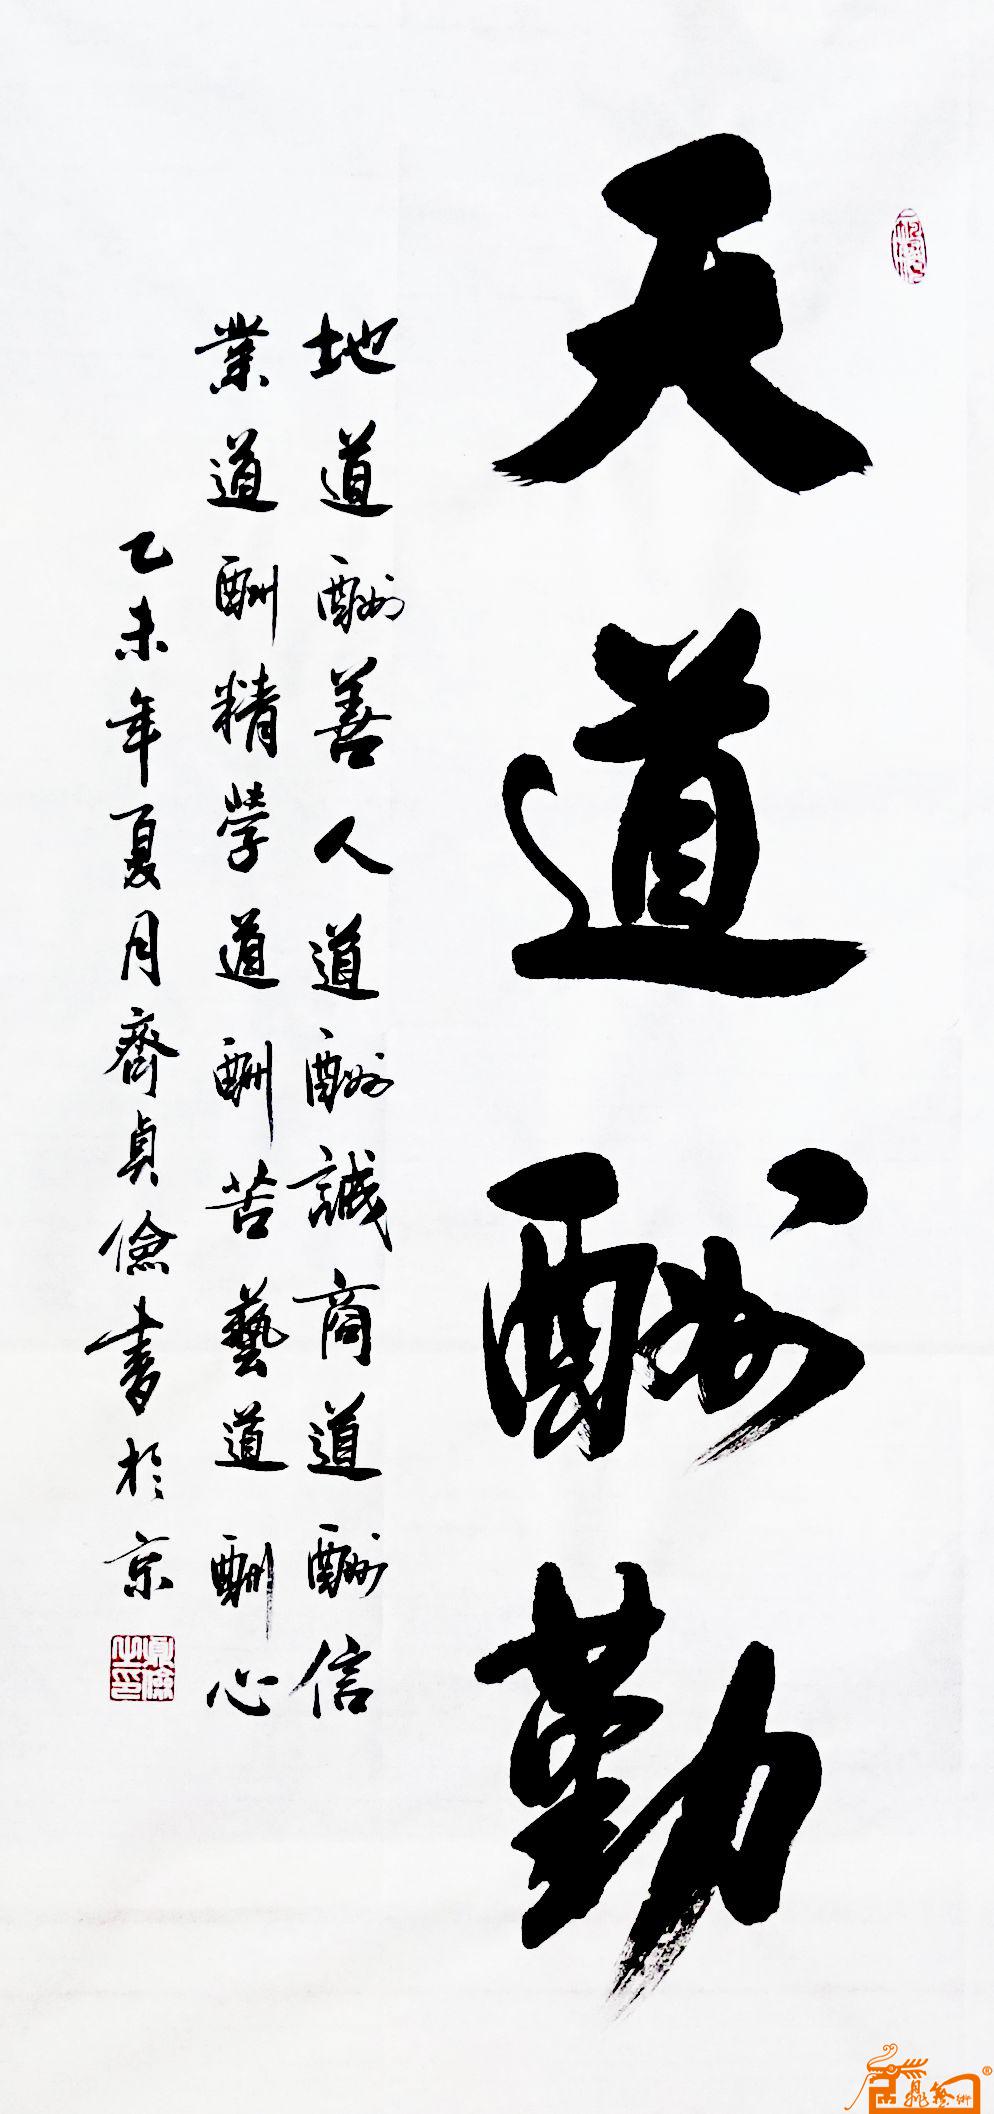 天道酬勤
地道酬善人道酬誠商道酬信
業道酬精學道酬苦藝道酬心
乙未年夏月齊貞儉書於京
貞儉之印